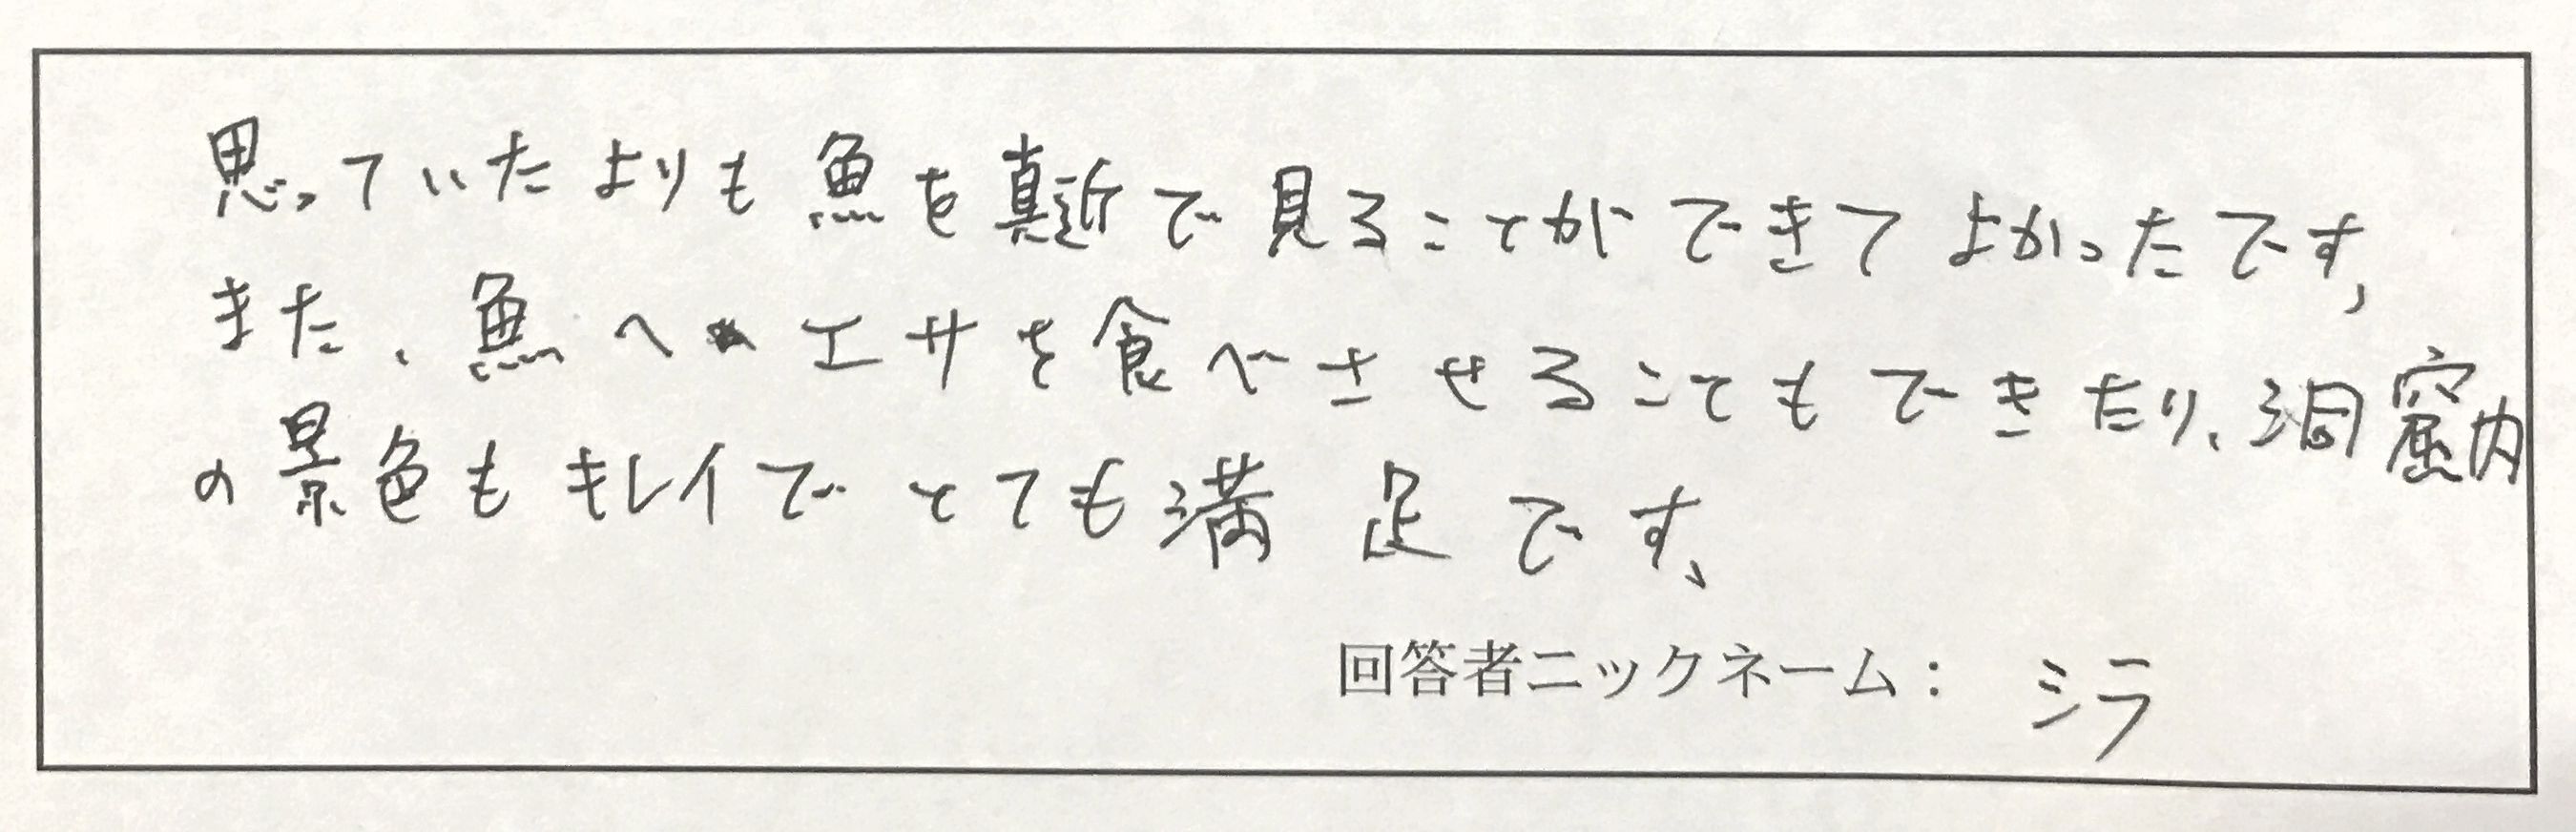 思っていたよりも魚を真近で見ることができてよかったです、
また、魚へエサを食べさせることもできたり、洞窟内
の景色もキレイでとても満足です、
回答者ニックネーム： シラ